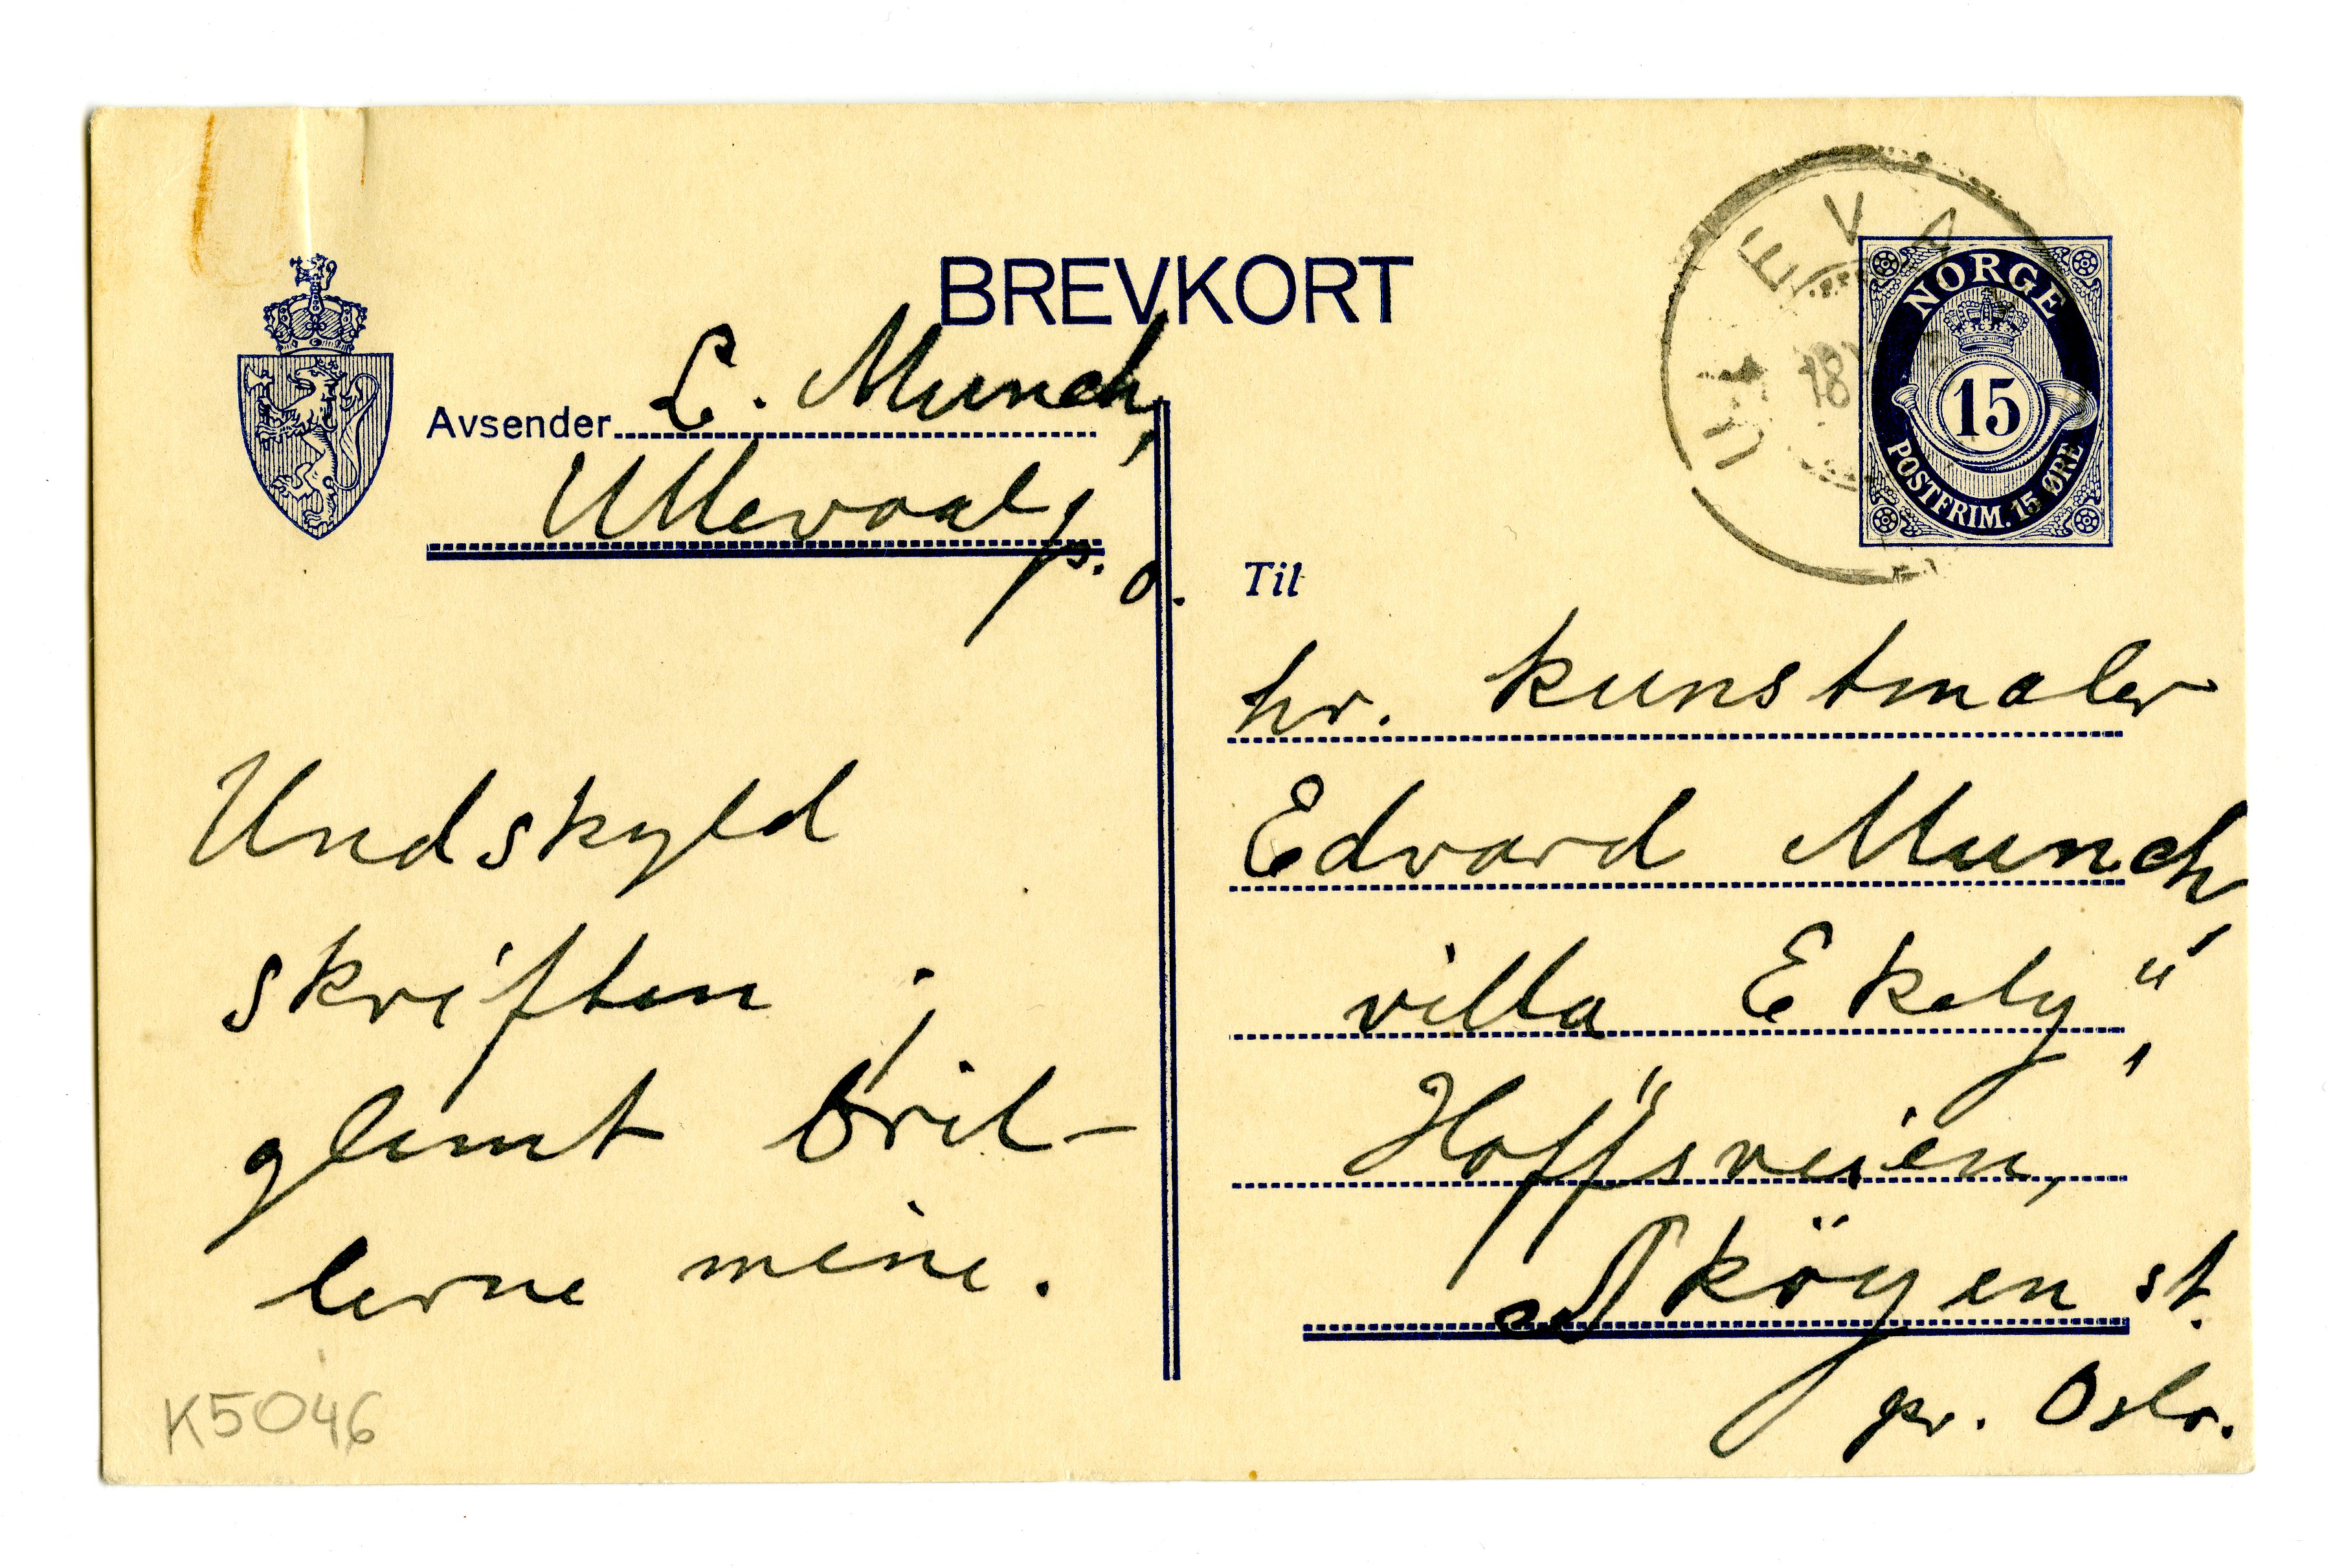 BREVKORT
Avsender L. Munch,
Ullevaal
p. o.
Undskyld
skriften ;
glemt bril-
lerne mine.
K5046
NORGE
15
POSTFRIM. 15 ØRE
18
Til
hr. kunstmaler
Edvard Munch,
villa Ekely",
Hoffsveien,
Sköyen st.
pr. Oslo.